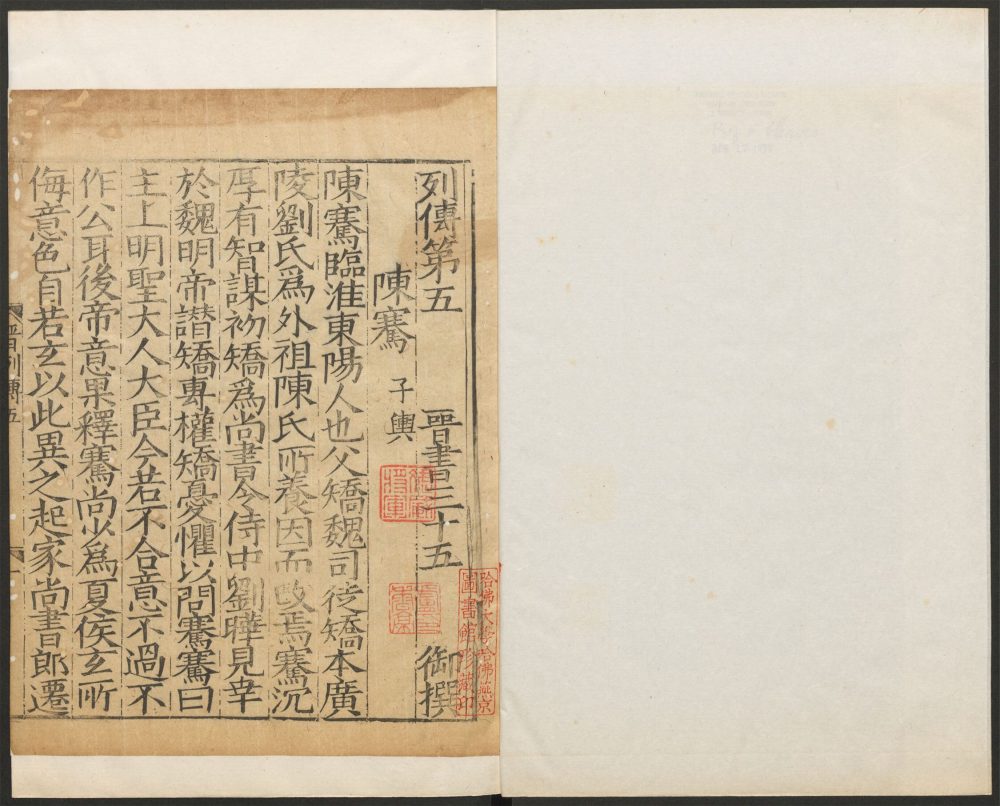 列傳第五 晉書三十五 御撰
陳騫 子輿
陳騫臨淮東陽人也父矯魏司徒矯本廣
陵劉氏爲外祖陳氏所養因而改焉騫沉
厚有智謀初矯爲尚書令侍中劉曄見幸
於魏明帝譖矯專權矯憂懼以問騫騫曰
主上明聖大人大臣今若不合意不過不
作公耳後帝意果釋騫尚少爲夏侯玄所
侮意色自若玄以此異之起家尚書郎遷
晉列傳五
哈佛大學哈佛燕京
圖書館珍藏印